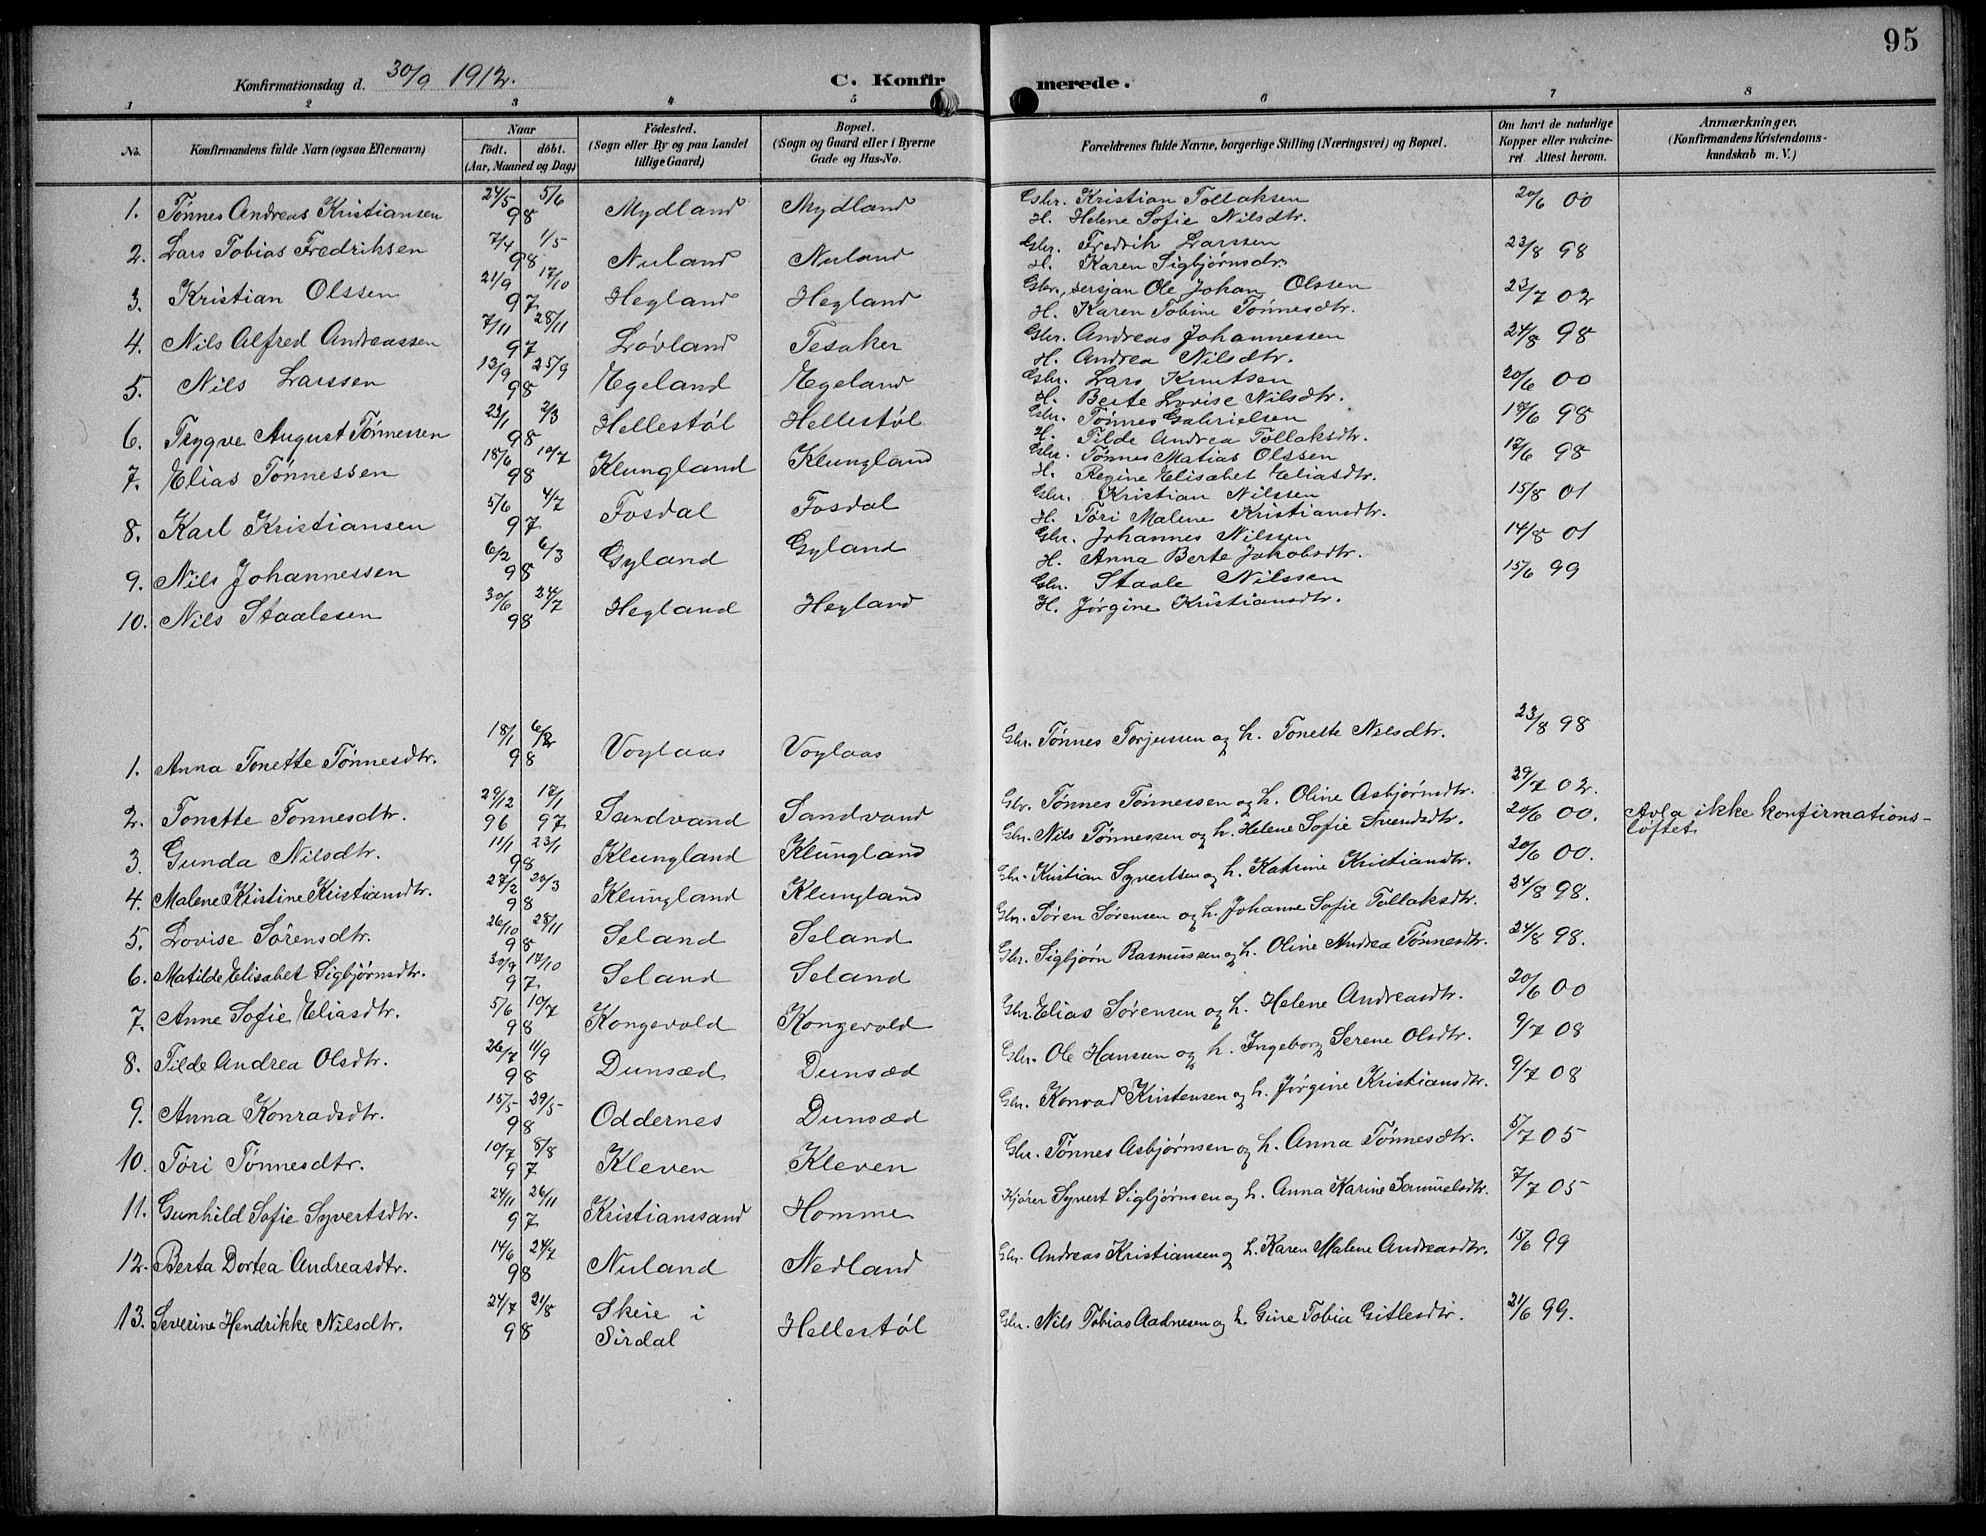 95
Konfirmationsdag d. 30/9 1912. C. Konfirmerede.
1 2 3 4 5 6 7 8
No. Konfirmandens fulde Navn (ogsaa Efternavn) Naar født. døbt. (Aar, Maaned og Dag) Fødested. (Sogn eller By og paa Landet tillige Gaard) Bopæl. (Sogn og Gaard eller i Byerne Gade og Hus-No. Forældrenes fulde Navne, borgerlige Stilling (Næringsvei) og Bopæl. Om havt de naturlige Kopper eller vakcineret. Attest herom. Anmærkninger. (Konfirmandens Kristendomskundskab m. V.)
1. Tønnes Andreas Kristiansen 24/5 5/6 98 Mydland Mydland Gbr. Kristian Tollaksen 20/6 00
H. Helene Sofie Nilsdtr.
2. Lars Tobias Fredriksen 7/4 1/5 98 Nuland Nuland Gbr. Fredrik Larssen 23/8 98
H. Karen Sigbjørnsdr.
3. Kristian Olssen 21/9 17/10 97 Hegland Hegland Gbr., sersjan Ole Johan Olssen 23/7 02
H. Karen Tobine Tønnesdtr.
4. Nils Alfred Andreassen 7/11 28/11 97 Løvland Tesaker Gbr. Andreas Johannessen 24/8 98
H. Andrea Nilsdtr.
5. Nils Larssen 13/9 25/9 98 Egeland Egeland Gbr. Lars Knutsen 20/6 00
H. Berte Lovise Nilsdtr.
6. Trygve August Tønnessen 23/1 2/3 98 Hellestøl Hellestøl Gbr. Tønnes Gabrielsen 17/6 98
H. Tilde Andrea Tollaksdtr.
7. Elias Tønnessen 18/6 10/7 98 Klungland Klungland Gbr. Tønnes Matias Olssen 17/6 98
H. Regine Elisabet Eliasdtr.
8. Karl Kristiansen 5/6 4/7 97 Fosdal Fosdal Gbr. Kristian Nilssen 15/8 01
H. Tøri Malene Kristiansdtr.
9. Nils Johannessen 6/2 6/3 98 Gyland Gyland Gbr. Johannes Nilssen 14/8 01
H. Anna Berte Jakobsdtr.
10. Nils Staalesen 30/6 24/7 98 Hegland Hegland Gbr. Staale Nilssen 15/6 99
H. Jørgine Kristiansdtr.
1. Anna Tonette Tønnesdtr. 18/1 6/2 98 Voglaas Voglaas Gbr. Tønnes Torjussen og h. Tonette Nilsdtr. 23/8 98
2. Tonette Tønnesdtr. 29/12 96 17/1 97 Sandvand Sandvand Gbr. Tønnes Tønnessen og h. Oline Asbjørnsdtr. 29/7 02.
3. Gunda Nilsdtr. 11/1 23/1 98 Klungland Klungland Gbr. Nils Tønnessen og h. Helene Sofie Svendsdtr. 20/6 00. Avla ikke konfirmations-
løftet
4. Malene Kristine Kristiandtr. 27/2 20/3 98 Klungland Klungland Gbr. Kristian Syvertsen og h. Katrine Kristiandtr. 20/6 00.
5. Lovise Sørensdtr. 26/10 28/11 98 Seland Seland Gbr. Søren Sørensen og h. Johanne Sofie Tollaksdtr. 24/8 98.
6. Matilde Elisabet Sigbjørnsdtr. 30/9 17/10 97 Seland Seland Gbr. Sigbjørn Rasmussen og h. Oline Andrea Tønnesdtr. 24/8 98.
7. Anne Sofie Eliasdtr. 5/6 10/7 98 Kongevold Kongevold Gbr. Elias Sørensen og h. Helene Andreasdtr. 20/6 00
8. Tilde Andrea Olsdtr. 26/7 11/9 98 Dunsæd Dunsæd Gbr. Ole Hanssen og h. Ingeborg Serene Olsdtr. 9/7 08
9. Anna Konradsdtr. 15/5 29/5 98 Oddernes Dunsæd Gbr. Konrad Kristensen og h. Jørgine Kristiansdtr. 9/7 08
10. Tøri Tønnesdtr. 10/7 8/8 97 Kleven Kleven Gbr. Tønnes Asbjørnsen og h. Anna Tønnesdtr. 5/7 05
11. Gunhild Sofie Syvertsdtr. 24/11 26/11 97 Kristianssand Homme Kjører Syvert Sigbjørnsen og h. Anna Karine Samuelsdtr. 7/7 05
12. Berta Dortea Andreasdtr. 14/6 24/7 98 Nuland Nedland Gbr. Andreas Kristiansen og h. Karen Malene Andreasdtr. 15/6 99
13. Severine Hendrikke Nilsdtr. 24/7 21/8 98 Skeie i Sirdal Hellestøl Gbr. Nils Tobias Aadnesen og h. Gine Tobia Gitlesdtr. 21/6 99.